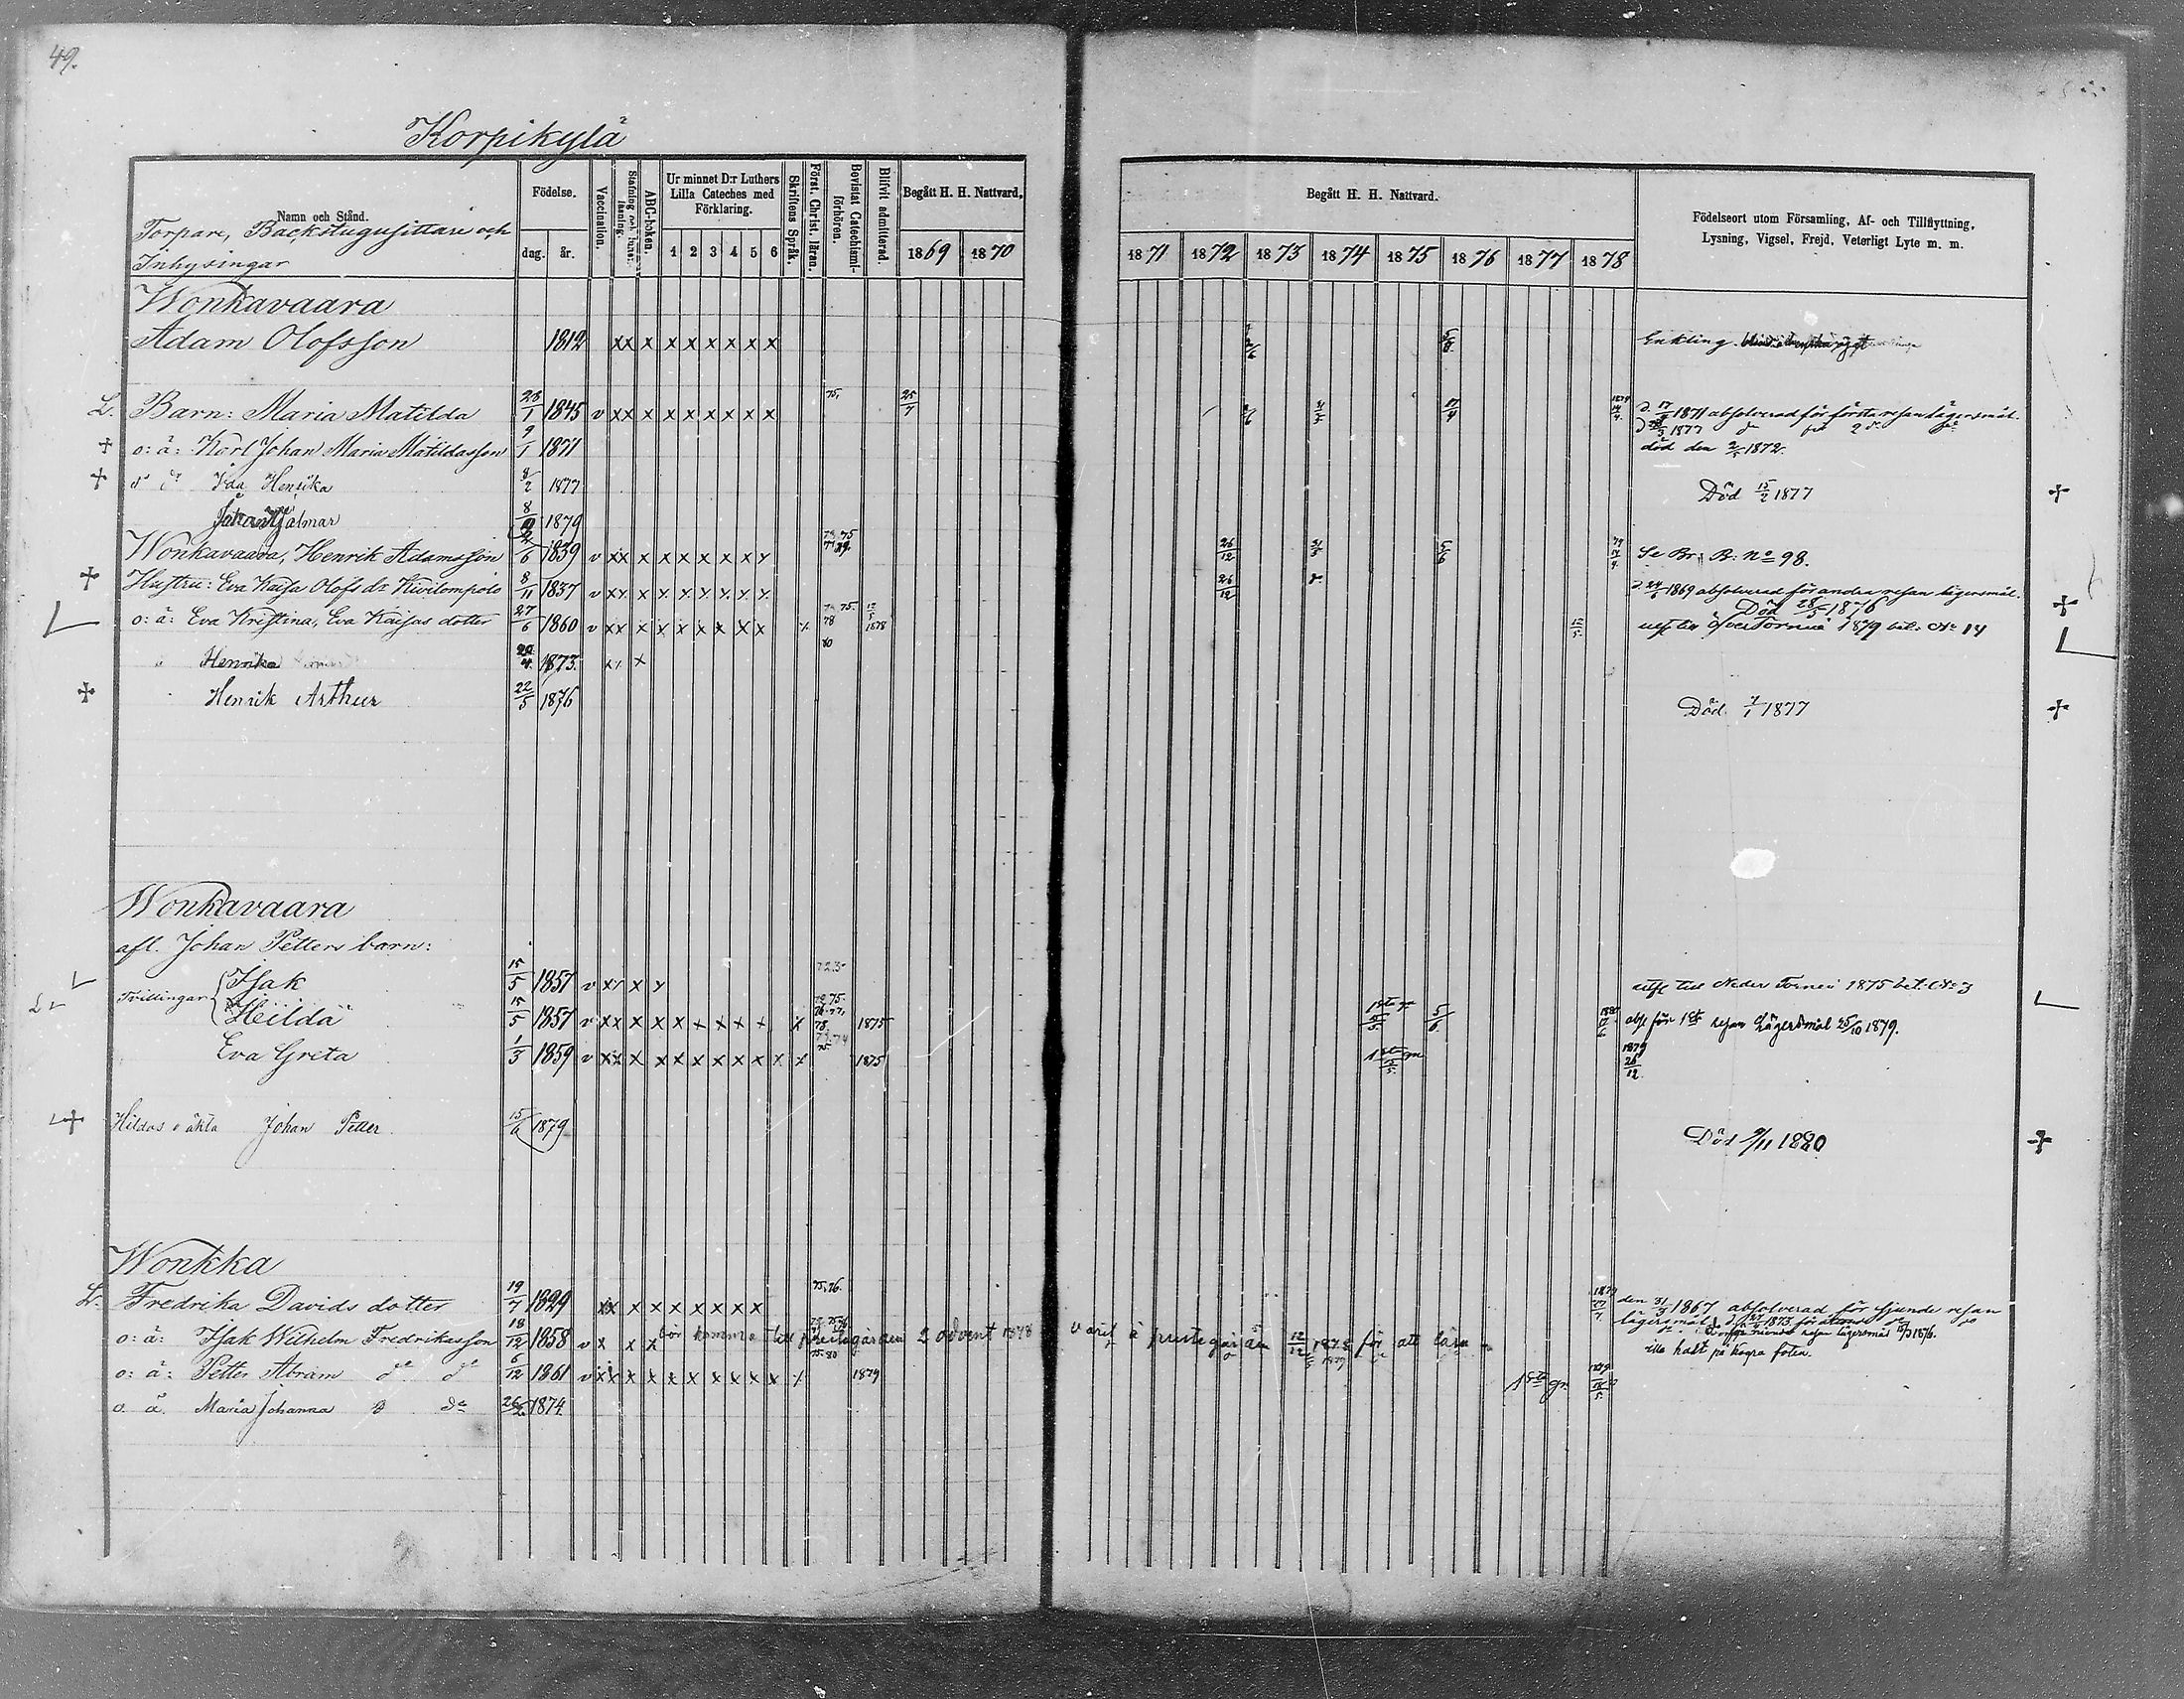 49.
Korpikylä
Namn och Stånd.
Torpare, Backstugusittare och
Inhysingar
Födelse.
dag. år.
Vaccination.
Stafning och innanläsning.
ABC-boken.
Ur minnet D:r Luthers
Lilla Cateches med
Förklaring.
1 2 3 4 5 6
Skriftens Språk.
Först. Christ. läran.
Bevistat Catechismi-
förhören.
Blifvit admitterad.
Begått H. H. Nattvard.
1869 1870
Begått H. H. Nattvard.
1871 1872 1873 1874 1875 1876 1877 1878
Födelseort utom Församling, Af- och Tillflyttning,
Lysning, Vigsel, Frejd, Veterligt Lyte m. m.
Wonkavaara
Adam Olofsson 1812 xx x x x x x x x Enkling
L. Barn: Maria Matilda 28/1 1845 v xx x x x x x x x 75. 25/7 17/4 d. 17/4 1871 absolverad för första resan lägersmål.
1877 2
+ o: ä: Karl Johan Maria Matildasson 9/1 1871 död den 2/5 1872.
+ Ida Henrika 8/2 1877 Död 15/2 1877 +
Johan Hjalmar 8/10 1879
Wonkavaara, Henrik Adamsson 1839 v xx x x x x x x x 26/12 31/5 5/6 Se Br: B: No 98.
+ Hustru: Eva Kaisa Olofs dr Kivilompolo 8/11 1837 v xx x x x x x x x 26/12 d. 24/6 1869 absolverad för andra resan lägersmål.
Död 28/5 1876 +
o: ä: Eva Kristina, Eva Kaisas dotter 27/6 1860 v xx x x x x x x x 75. 78 80 1878 utfl. till Öfver Torneå 1879 bet. No 14
Henrika 1873. xx x
+ Henrik Arthur 22/5 1876 Död 7/1 1877 +
Wonkavaara
afl. Johan Petters barn:
Tvillingar Isak 15/5 1857 v xx x x utfl till Neder Torneå 1875 bet. No 3
Hilda 15/5 1857 v xx x x x x x x x x 75. 78. 1875 5/6 abs för 1sta resan Lägersmål 25/10 1879.
Eva Greta 1/3 1859 v xx x x x x x x x x 1875 1879 26/12
+ Hildas o äkta Johan Petter 15/6 1879 Död 9/11 1880 +
Wonkka
L. Fredrika Davids dotter 19/7 1829 xx x x x x x x x 75. 76. den 31/3 1867 absolverad för sjunde resan
lägersmål 1873 för
nionde resan lägersmål 1876.
o: ä: Isak Wilhelm Fredrikasson 18/12 1858 v x x x bör komma till prestegården 2 advent 1878 varit å prestegården 12/12 1878 för att lära illa halt på högra foten.
o: ä: Petter Abram do do 6/12 1861 v xx x x x x x x x x 75. 80 1879 1sta g.
o. ä. Maria Johanna do 1874